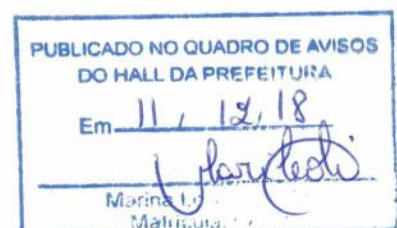 PUBLICADO NO QUADRO DE AVISOS
DO HALL DA PREFEITURA
Em 11 / 12 / 18
Marina
Matrícula